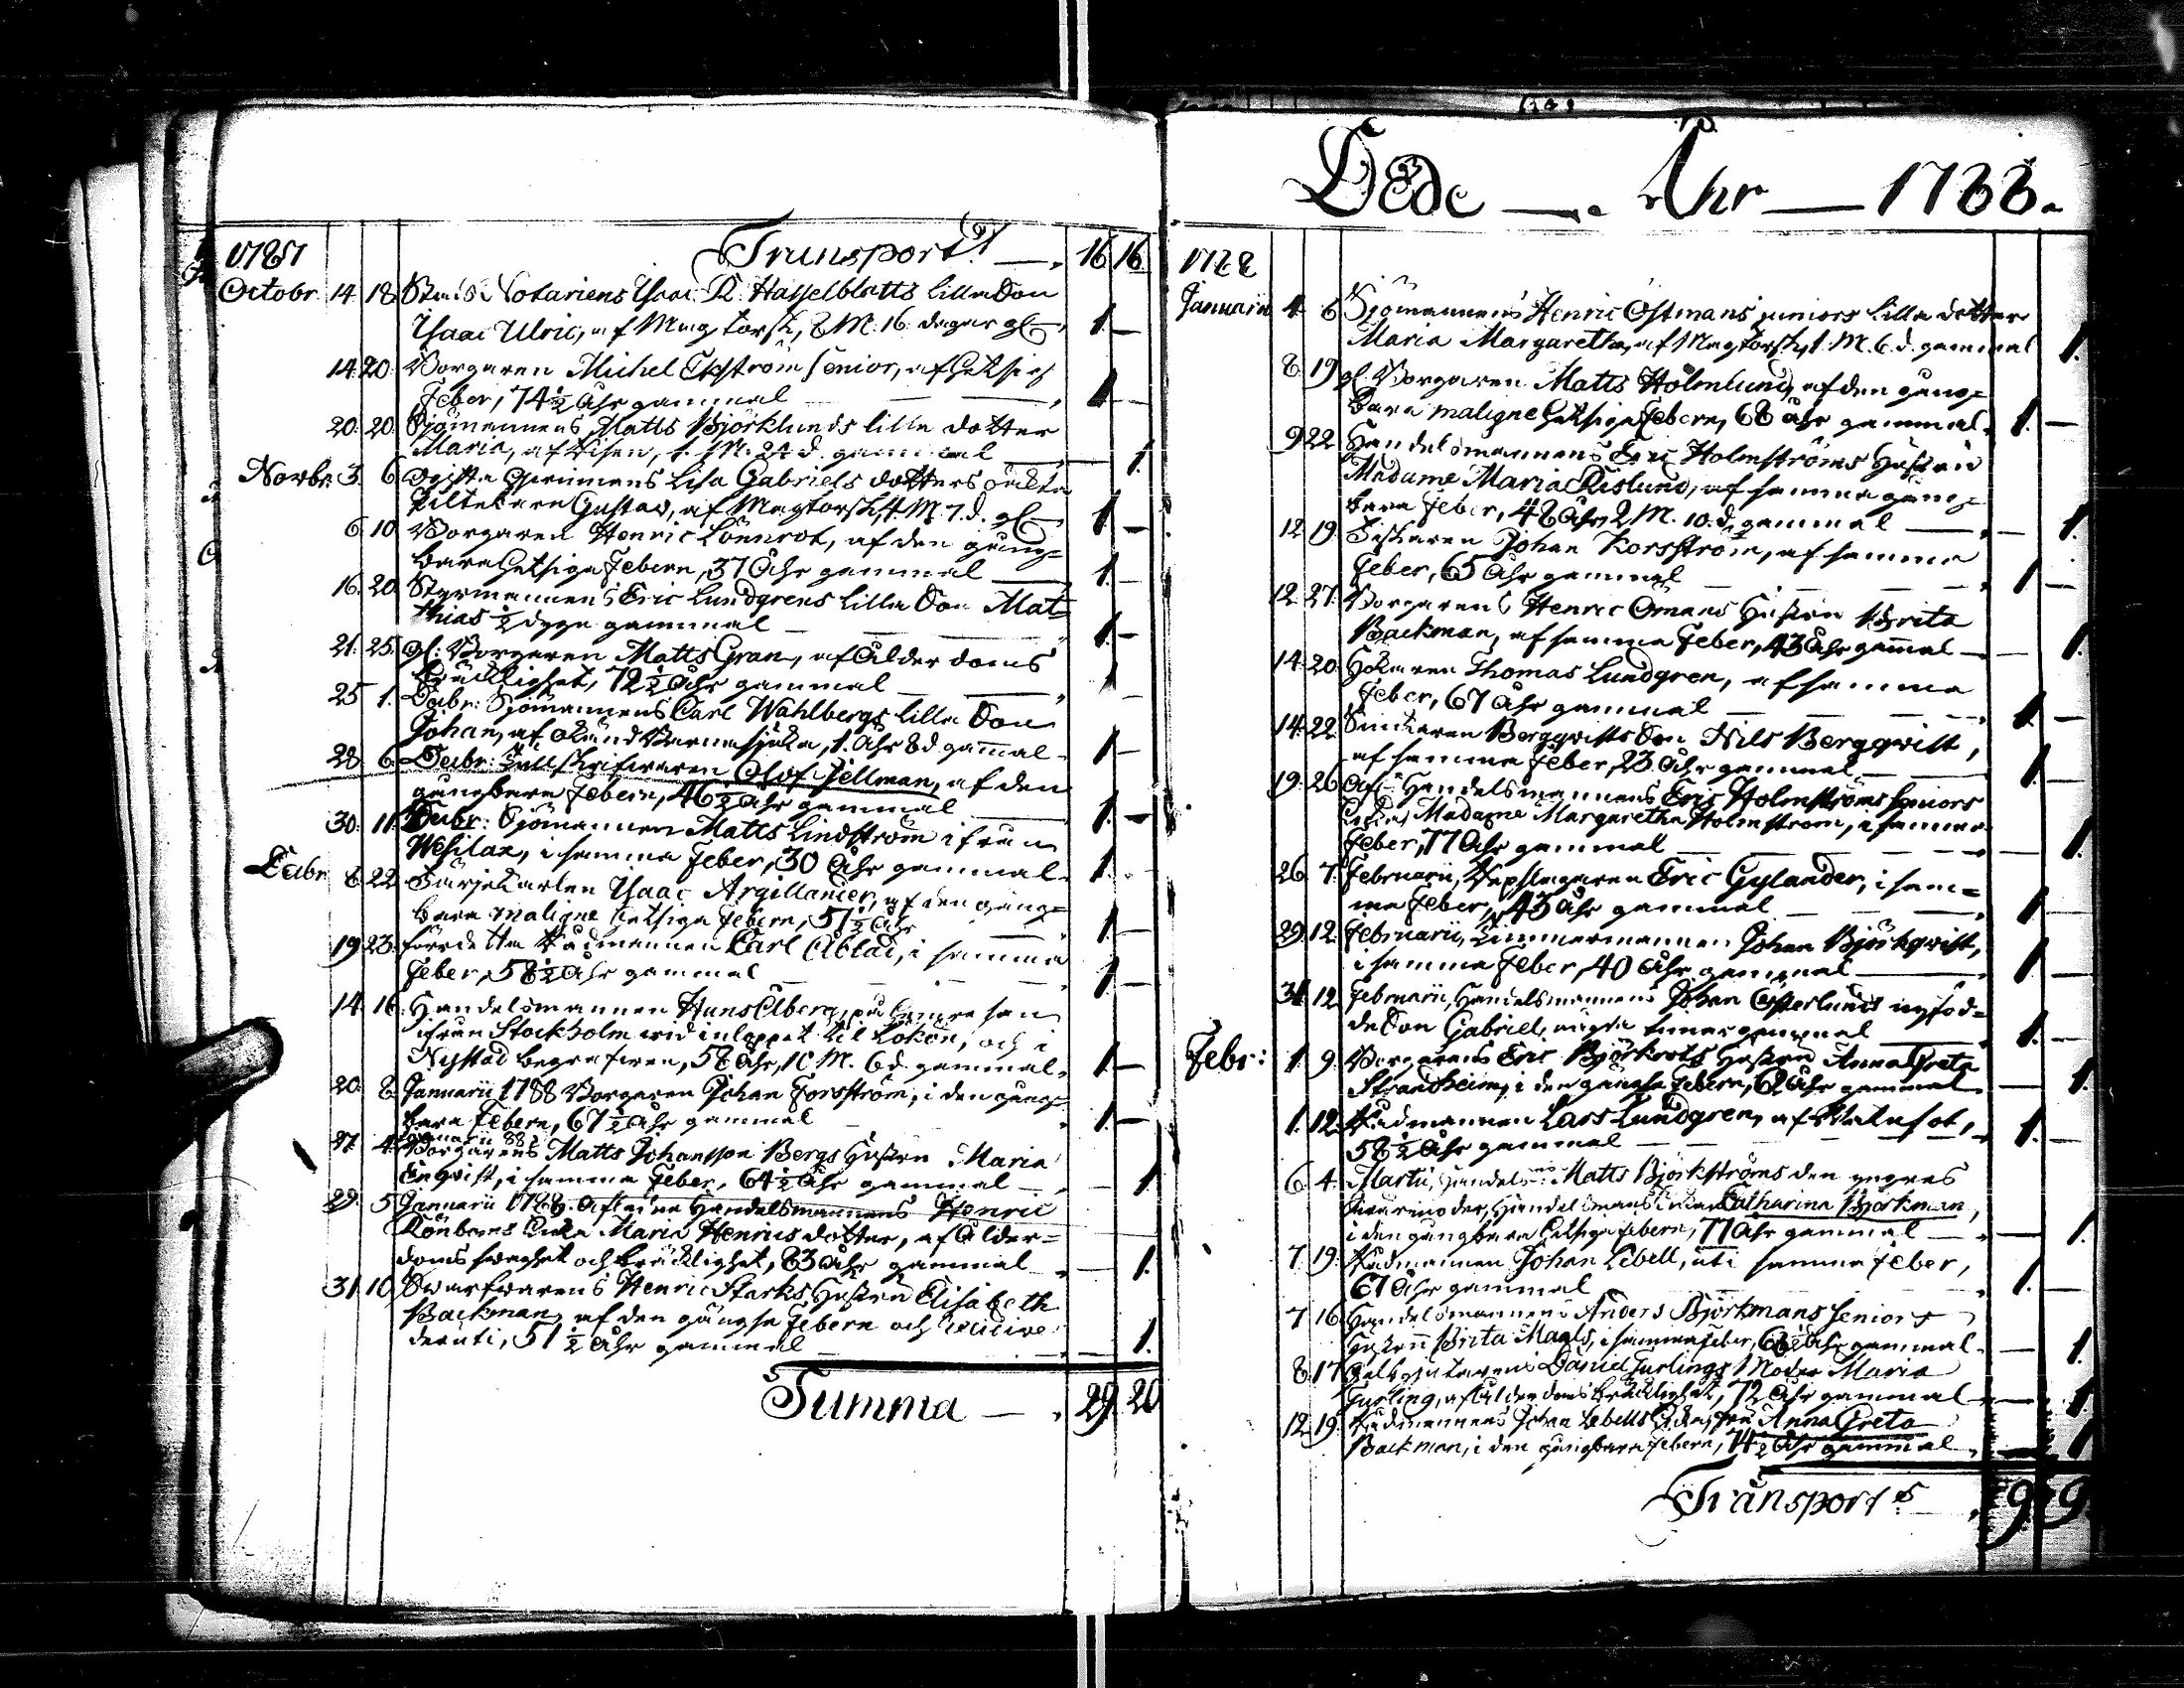 1787 Transport 16 16
Octobr 14 18 Stads Notariens Isaac R. Hasselblatts lilla Son
Isaac Ulric, af Magtorsk, 8 M. 16 dagar gl 1
14 20 Borgaren Michel Ekström senior, af hetsig
Feber, 74½ Åhr gammal 1
20 20 Sjömannens Matts Björklunds lilla dotter
Maria, af Kisen, 1 M. 24 d. gammal 1
Novbr 3 6 ogifta Lisa Gabriels dotters oäkta
Gustav, af Magtorsk, 4 M. 7 d. gl 1
6 10 Borgaren Henric Lönnrot, af den gång=
bara hetsiga Febern, 37 Åhr gammal 1
16 20 Styrmannens Eric Lundgrens lilla Son Mat=
thias ½ dygn gammal 1
21 25 gl: Borgaren Matts Gran, af Ålderdoms
bräcklighet, 72½ Åhr gammal 1
25 1 Decbr: Sjömannens Carl Wahlbergs lilla Son
Johan, af okänd Barnasjuka, 1 Åhr 8 d gammal 1
28 6 Decbr: Olof Jellman, af den
gångbara Febern, 46½ Åhr gammal 1
30 11 Decbr: Sjömannen Matts Lindström ifrån
Wesilax, i samma Feber, 30 Åhr gammal 1
Decbr 8 22 Färjekarlen Isaac Argillander, af den gång=
bara maligne hetsiga Febern, 51½ Åhr 1
19 23 förra detta Rådmannen Carl Ablad, i samma
Feber, 58½ Åhr gammal 1
14 16 Handelsmannen Hans Alberg, på hemresan
ifrån Stockholm wid inloppet til Lökön, och i
Nystad begrafwen, 58 Åhr, 10 M. 6 d. gammal 1
20 8 Januarii 1788 Borgaren Johan Forsström, i den gång=
bara Febern, 67½ Åhr gammal 1
27 4 Januarii 88
Borgarens Matts Johansson Bergs Hustru Maria
Enqvist, i samma Feber, 64½ Åhr gammal 1
29 5 Januarii 1788. Aflidne Handelsmannens Henric
Rönbergs Enka Maria Henrics dotter, af Ålder=
doms swaghet och bräcklighet, 83 Åhr gammal 1
31 10 Swarfwarens Henric Starks Hustru Elisabeth
Backman, af den gångse Febern och recidive
deruti, 51½ Åhr gammal 1
Summa 29 20
Döde Åhr 1788.
1788
Januarii 4 6 Sjömannens Henric Östmans juniors lilla dotter
Maria Margaretha, af Magtorsk, 1 M. 6 d. gammal 1
8 19 gl. Borgaren Matts Holmlund, af den gång=
bara maligne hetsiga Febern, 68 åhr gammal 1
9 22 Handelsmannens Eric Holmströms Hustru
Madame Maria Rislund, af samma gång=
bara Feber, 48 Åhr, 2 M. 10 d. gammal 1
12 19 Fiskaren Johan Korsström, af samma
Feber, 65 Åhr gammal 1
12 27 Borgarens Henric Ömans Hustru Brita
Backman, af samma Feber, 43 Åhr gammal 1
14 20 Hökaren Thomas Lundgren, af samma
Feber, 67 Åhr gammal 1
14 22 Bergqvists Son Nils Bergqvist,
af samma Feber, 23 Åhr gammal 1
19 26 Afl: Handelsmannens Eric Holmströms seniors
Enka, Madame Margaretha Holmstrom, i samma
Feber, 77 Åhr gammal 1
26 7 Februarii, Repslagaren Eric Gylander, i sam=
ma Feber, 43 Åhr gammal 1
29 12 Februarii, Timmermannen Johan Björkqvist,
i samma Feber, 40 Åhr gammal 1
31 12 Februarii, Handelsmannens Johan Österlunds nyföd=
de Son Gabriel, några timar gammal 1
Febr: 1 9 Borgarens Eric Björkrots Hustru Anna Greta
Strandheim, i den gångse Febern, 62 Åhr gammal 1
1 12 Rådmannen Lars Lundgren, af
58½ Åhr gammal 1
6 4 Martii, Handelsm: Matts Björkströms den yngres
Swärmoder, Handelsmans Enkan Catharina Björkman,
i den gångbara hetsiga Febern, 77 Åhr gammal 1
7 19 Rådmannen Johan Lebell, uti samma Feber,
67 Åhr gammal 1
7 16 Handelsmannens Anders Björkmans Senior
Hustru Brita Maals, i samma Feber, Åhr gammal 1
8 17 Daniel Jurlings Moder Maria
Jurling, af Ålderdoms bräcklighet, 72 Åhr gammal 1
12 19 Rådmannens Johan Lebells Enka, fru Anna Greta
Backman, i den gångbara Febern, 74½ Åhr gammal 1
Transport 9 9